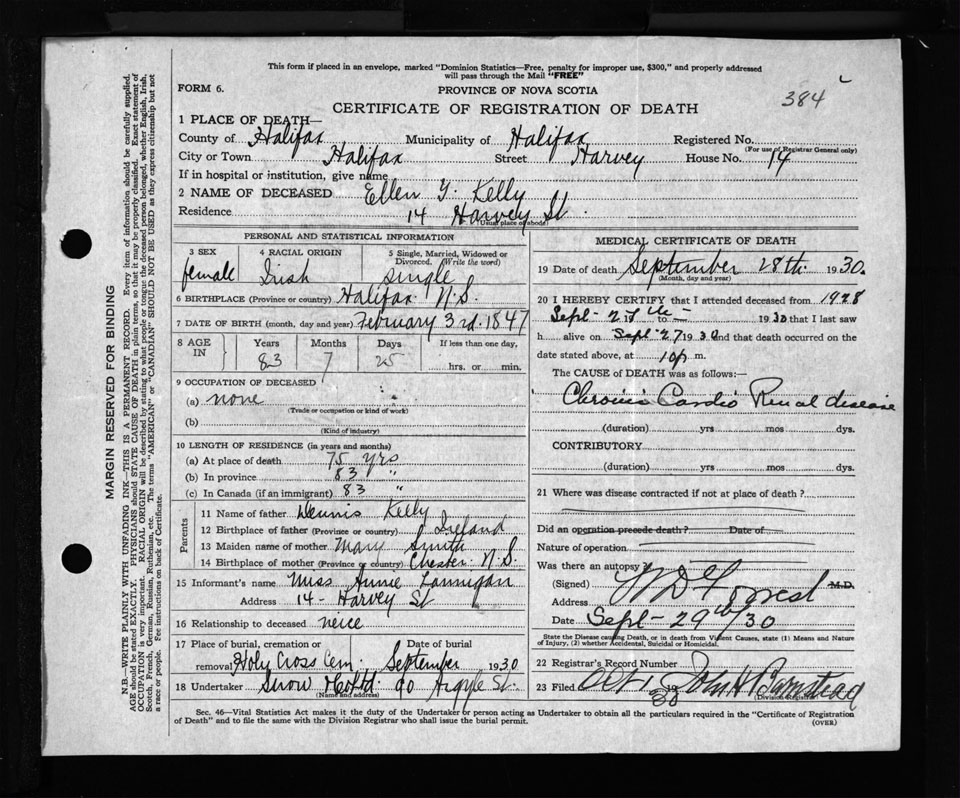 This form if placed in an envelope, marked "Dominion Statistics—Free, penalty for improper use, $300," and properly addressed
will pass through the Mail "FREE"
FORM 6.
PROVINCE OF NOVA SCOTIA
384
CERTIFICATE OF REGISTRATION OF DEATH
1 PLACE OF DEATH—
County of Halifax Municipality of Halifax Registered No.
(For use of Registrar General only)
City or Town Halifax Street Harvey House No. 14
If in hospital or institution, give name
2 NAME OF DECEASED Ellen G. Kelly
Residence 14 Harvey St.
(Usual place of abode)
PERSONAL AND STATISTICAL INFORMATION
3 SEX
female
4 RACIAL ORIGIN
Irish
5 Single, Married, Widowed or
Divorced. (Write the word)
single
6 BIRTHPLACE (Province or country) Halifax N.S.
7 DATE OF BIRTH (month, day and year) February 3rd. 1847
8 AGE
IN
Years
83
Months
7
Days
25
If less than one day,
hrs. or min.
9 OCCUPATION OF DECEASED
(a) none
(Trade or occupation or kind of work)
(b)
(Kind of industry)
10 LENGTH OF RESIDENCE (in years and months)
(a) At place of death 75 yrs
(b) In province 83 "
(c) In Canada (if an immigrant) 83 "
Parents
11 Name of father Dennis Kelly
12 Birthplace of father (Province or country) Ireland
13 Maiden name of mother Mary Smith
14 Birthplace of mother (Province or country) Chester N.S.
15 Informant's name Miss Annie Lannigan
Address 14 - Harvey St
16 Relationship to deceased neice
17 Place of burial, cremation or
removal Holy Cross Cem.
Date of burial
September 1930
18 Undertaker Snow & Co Ltd. 90 Argyle St.
(Name and address)
MEDICAL CERTIFICATE OF DEATH
19 Date of death September 28th. 1930.
(Month, day and year)
20 I HEREBY CERTIFY that I attended deceased from 1928
Sept - to 1930 that I last saw
h alive on Sept - 27 1930 and that death occurred on the
date stated above, at 10 p m.
The CAUSE of DEATH was as follows:—
Chronic Cardio Renal disease
(duration) yrs mos dys.
CONTRIBUTORY
(duration) yrs mos dys.
21 Where was disease contracted if not at place of death?
Did an operation precede death? Date of
Nature of operation
Was there an autopsy?
(Signed) Forrest M.D.
Address
Date Sept - 29th/30
State the Disease causing Death, or in death from Violent Causes, state (1) Means and Nature
of Injury, (2) whether Accidental, Suicidal or Homicidal.
22 Registrar's Record Number
23 Filed Oct 1 30 John H Barnstead
Division Registrar
Sec. 46—Vital Statistics Act makes it the duty of the Undertaker or person acting as Undertaker to obtain all the particulars required in the "Certificate of Registration
of Death" and to file the same with the Division Registrar who shall issue the burial permit.
(OVER)
MARGIN RESERVED FOR BINDING
N.B.—WRITE PLAINLY WITH UNFADING INK—THIS IS A PERMANENT RECORD. Every item of information should be carefully supplied.
AGE should be stated EXACTLY. PHYSICIANS should STATE CAUSE OF DEATH in plain terms, so that it may be properly classified. Exact statement of
OCCUPATION is very important. RACIAL ORIGIN will be described by stating to what people or tongue the deceased person belonged, whether English, Irish,
Scotch, French, German, Russian, Ruthenian, etc. The terms "AMERICAN" or "CANADIAN" SHOULD NOT BE USED as they express citizenship but not
a race or people. See instructions on back of Certificate.